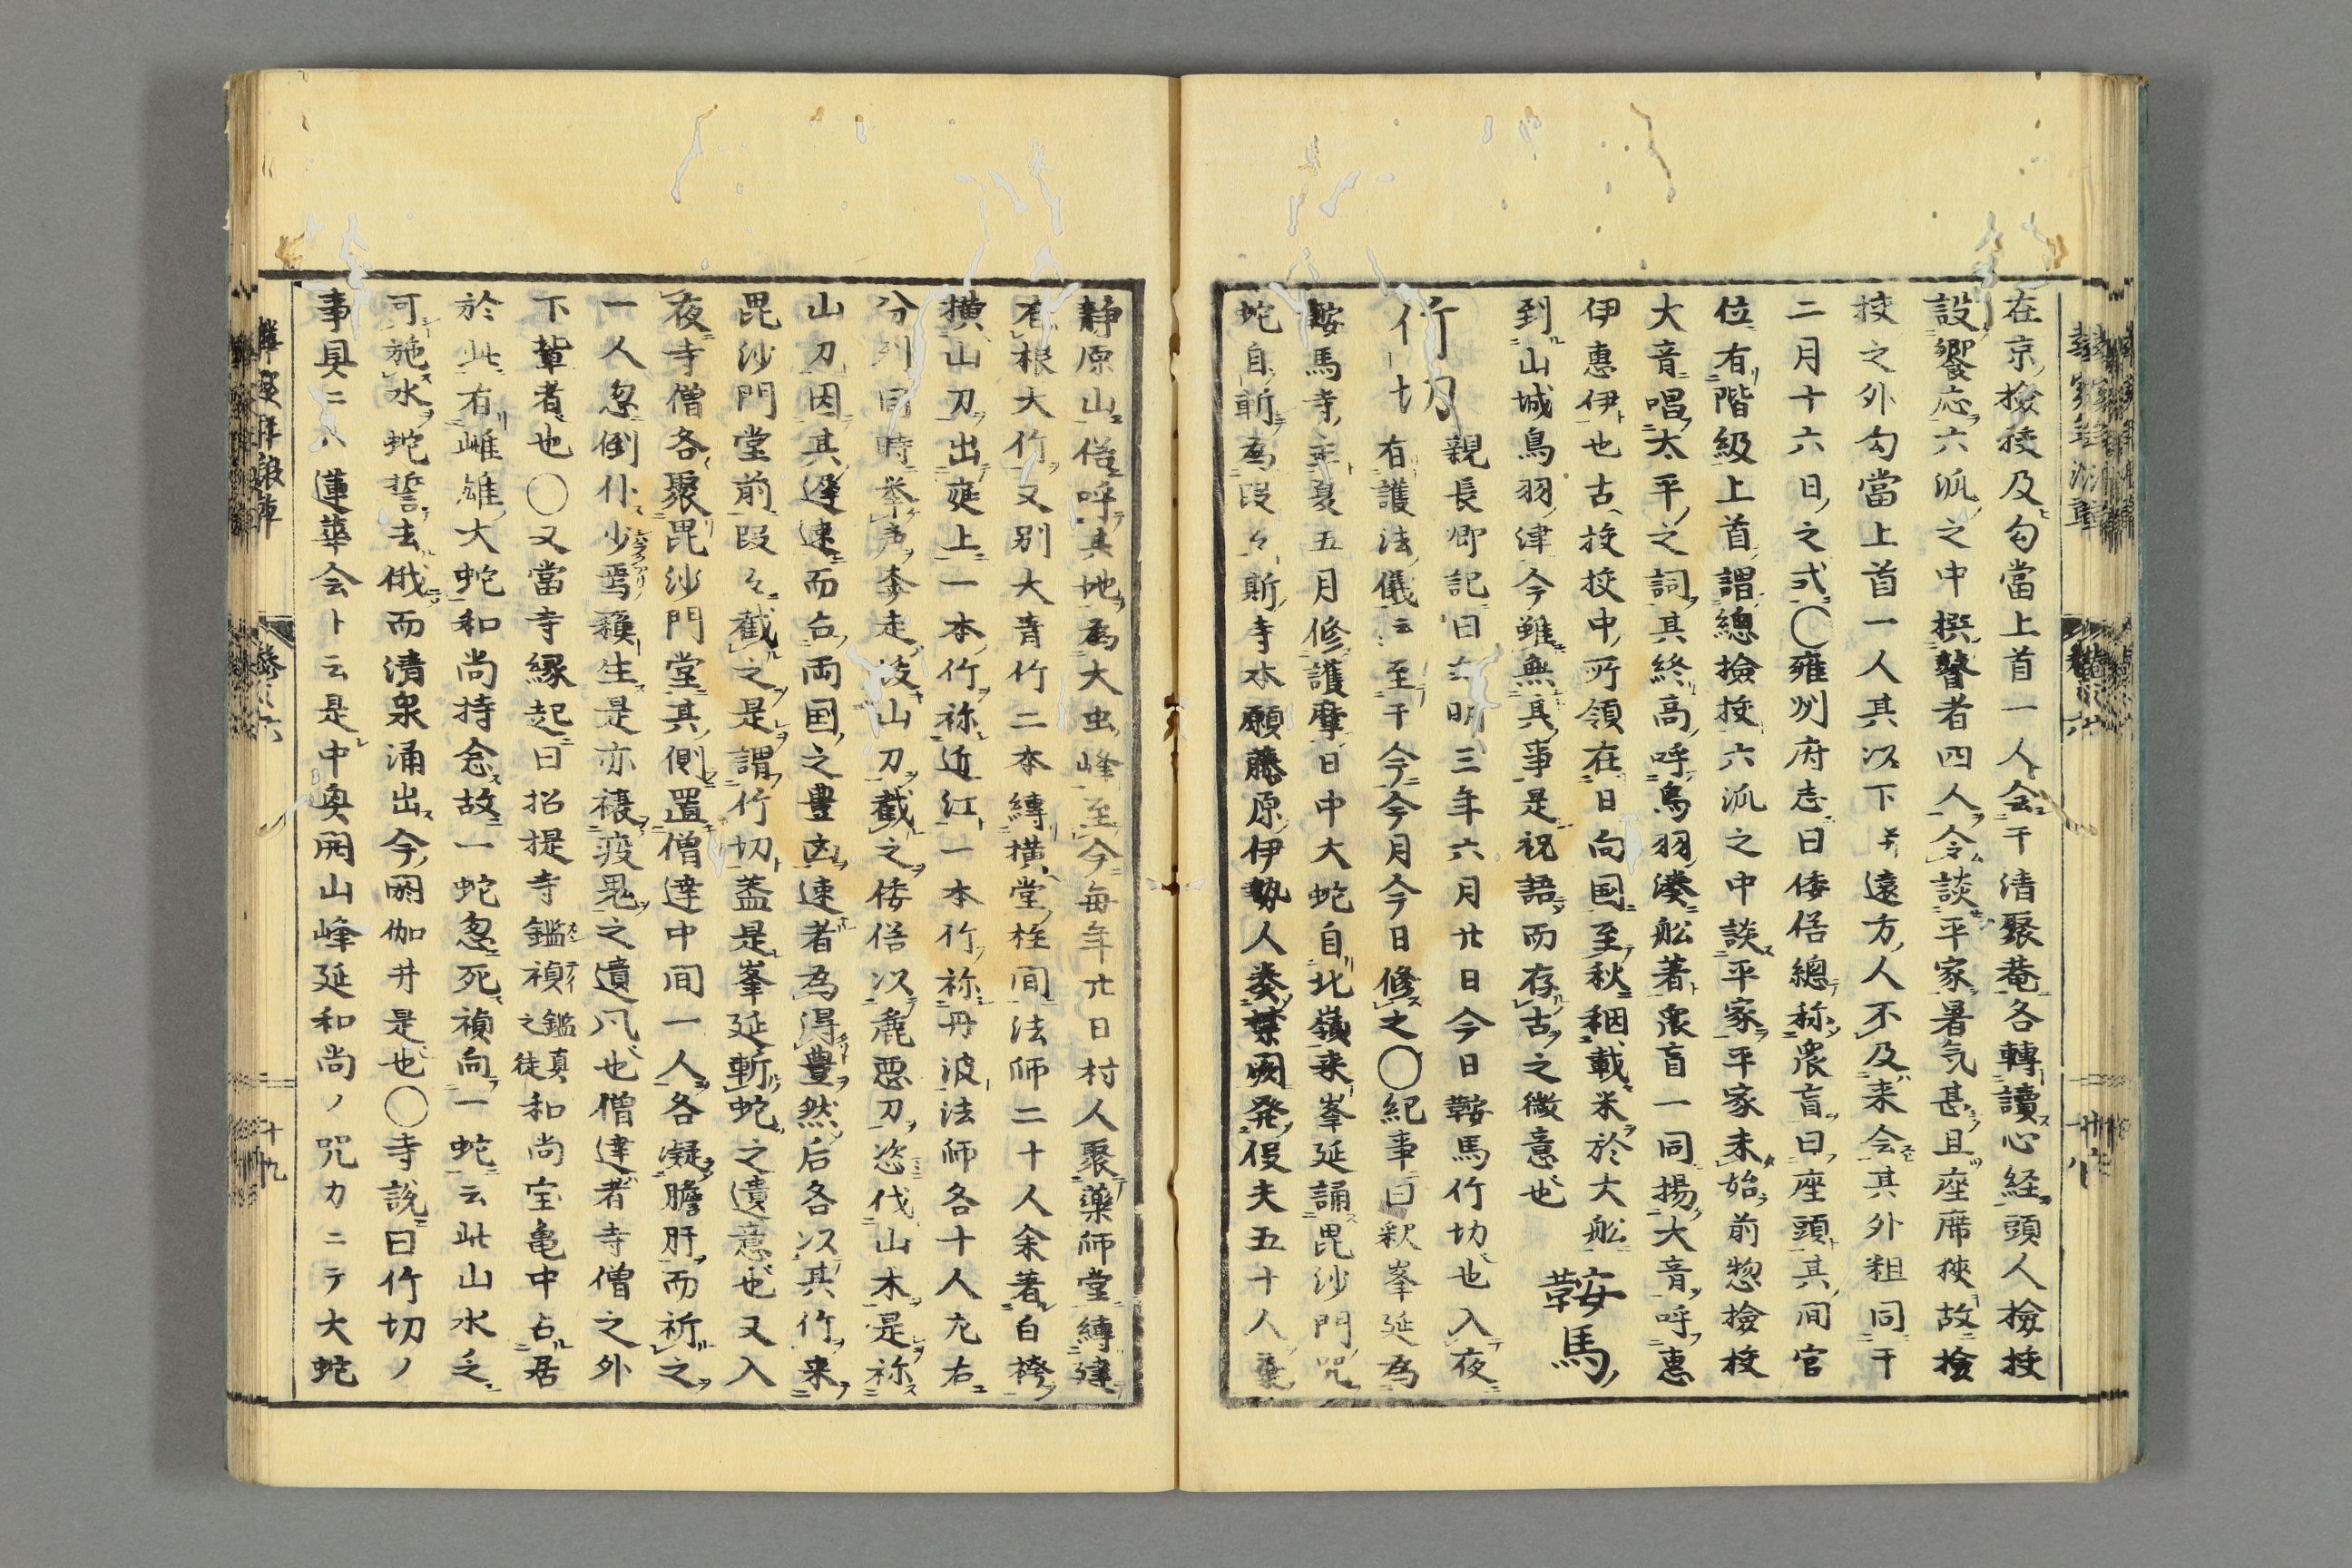 在京検挍及勾當上首一人会于清聚菴各轉讀心経頭人検挍
設饗応六派之中撰瞽者四人令談平家暑気甚且座席狭故検
挍之外勾當上首一人其以下并遠方人不及来会其外粗同于
二月十六日之式〇雍州府志曰倭俗總称衆盲曰座頭其間官
位有階級上首謂總検挍六派之中談平家平家未始前惣検挍
大音唱太平之詞其終高呼鳥羽湊舩著衆盲一同揚大音呼惠
伊惠伊也古検挍中所領在日向国至秋稛載米於大舩
到山城鳥羽津今雖無其事是祝語而存古之微意也
鞍馬
竹切
親長卿記曰文明三年六月廿日今日鞍馬竹切也入夜
有護法儀云至于今今月今日修之〇紀事曰釈峯延為
鞍馬寺主夏五月修護摩日中大蛇自北嶺来峯延誦毘沙門咒
蛇自斬為段々斯寺本願藤原伊勢人奏禁闕発役夫五十人棄
静原山俗呼其地為大虫峰至今毎年廿日村人聚藥師堂縛建
有根大竹又別大青竹二本縛横堂柱間法師二十人余著白袴
横山刀出庭上一本竹称近江一本竹称丹波法師各十人充右
分列同時挙声奔走彼山刀截之倭俗以麁悪刀恣伐山木是称
山刀因其遅速而占両国之豊凶速者為得豊然后各以其竹来
毘沙門堂前段々截之是謂竹切蓋是峯延斬蛇之遺意也又入
夜寺僧各聚毘沙門堂其側置僧達中間一人各凝膽肝而祈之
一人忽倒仆少焉穌生是亦禳疫鬼之遺風也僧達者寺僧之外
下輩者也〇又當寺縁起曰招提寺鑑禎鑑真之徒和尚宝亀中占居
於此有雌雄大蛇和尚持念故一蛇忽死禎向一蛇云此山水乏
可施水蛇誓去俄而清泉涌出今閼伽井是也〇寺説曰竹切ノ
事具ニハ蓮華会ト云是中奥開山峰延和尚ノ咒力ニテ大蛇